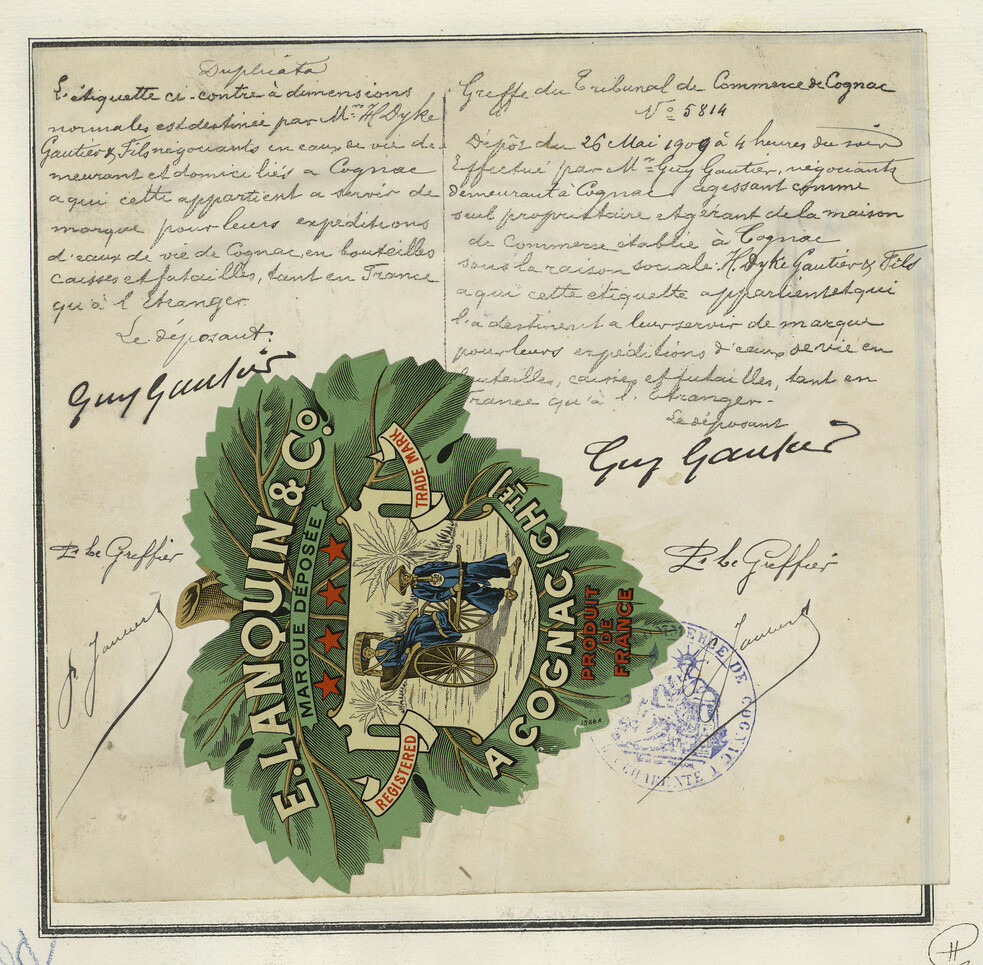 Duplicata
L'étiquette ci-contre à dimensions
normales est destinée par Mrs H Dyke
Gautier & Fils négociants en eaux de vie de
meurant et domiciliés a Cognac
a qui cette appartient a servir de
marque pour leurs expeditions
d'eaux de vie de Cognac, en bouteilles
caisses et futailles, tant en France
qu'à l'Etranger.
Le déposant.
Guy Gautier
P. Le Greffier
Greffe du Tribunal de Commerce de Cognac
No 5814
Dépôt du 26 Mai 1909 à 4 heures du soir
Effectué par Mr Guy Gautier, négociant
demeurant à Cognac agissant comme
seul propriétaire et gérant de la maison
de Commerce etablie à Cognac
sous la raison sociale: H. Dyke Gautier & Fils
a qui cette etiquette appartient et qui
l'a destinent a leur servir de marque
pour leurs expéditions d'eaux de vie en
bouteilles, caisses et futailles, tant en
France qu'à l'Etranger.
Le déposant
Guy Gautier
P. Le Greffier
E. LANQUIN & Co.
MARQUE DÉPOSÉE
TRADE MARK
REGISTERED
A COGNAC (CHTE)
PRODUIT
DE
FRANCE
COMMERCE DE COGNAC
CHARENTE